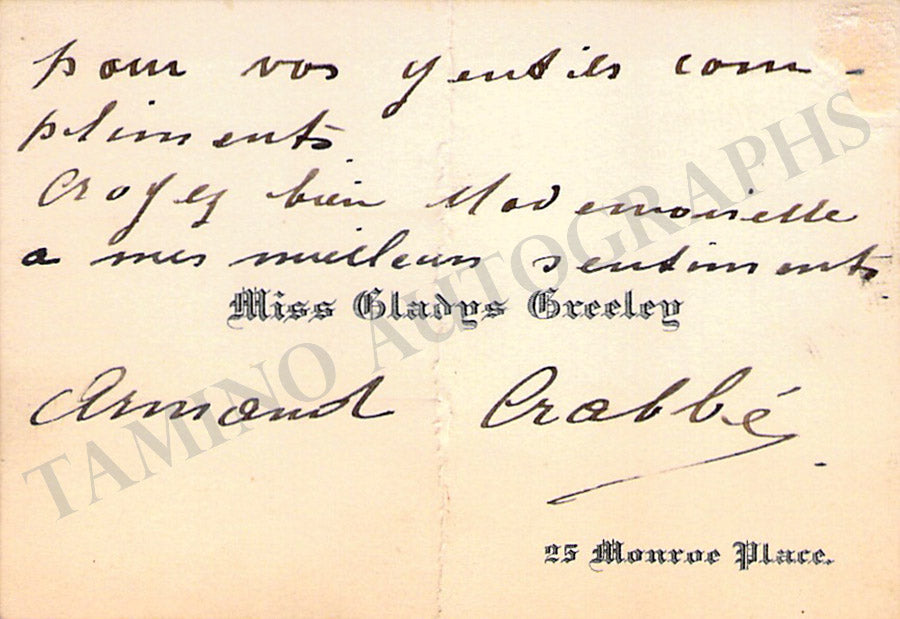 pour vos gentils com-
pliments
Croyez bien Mademoiselle
a mes meilleurs sentiments
Miss Gladys Greeley
Armand Crabbé
25 Monroe Place.
TAMINO AUTOGRAPHS